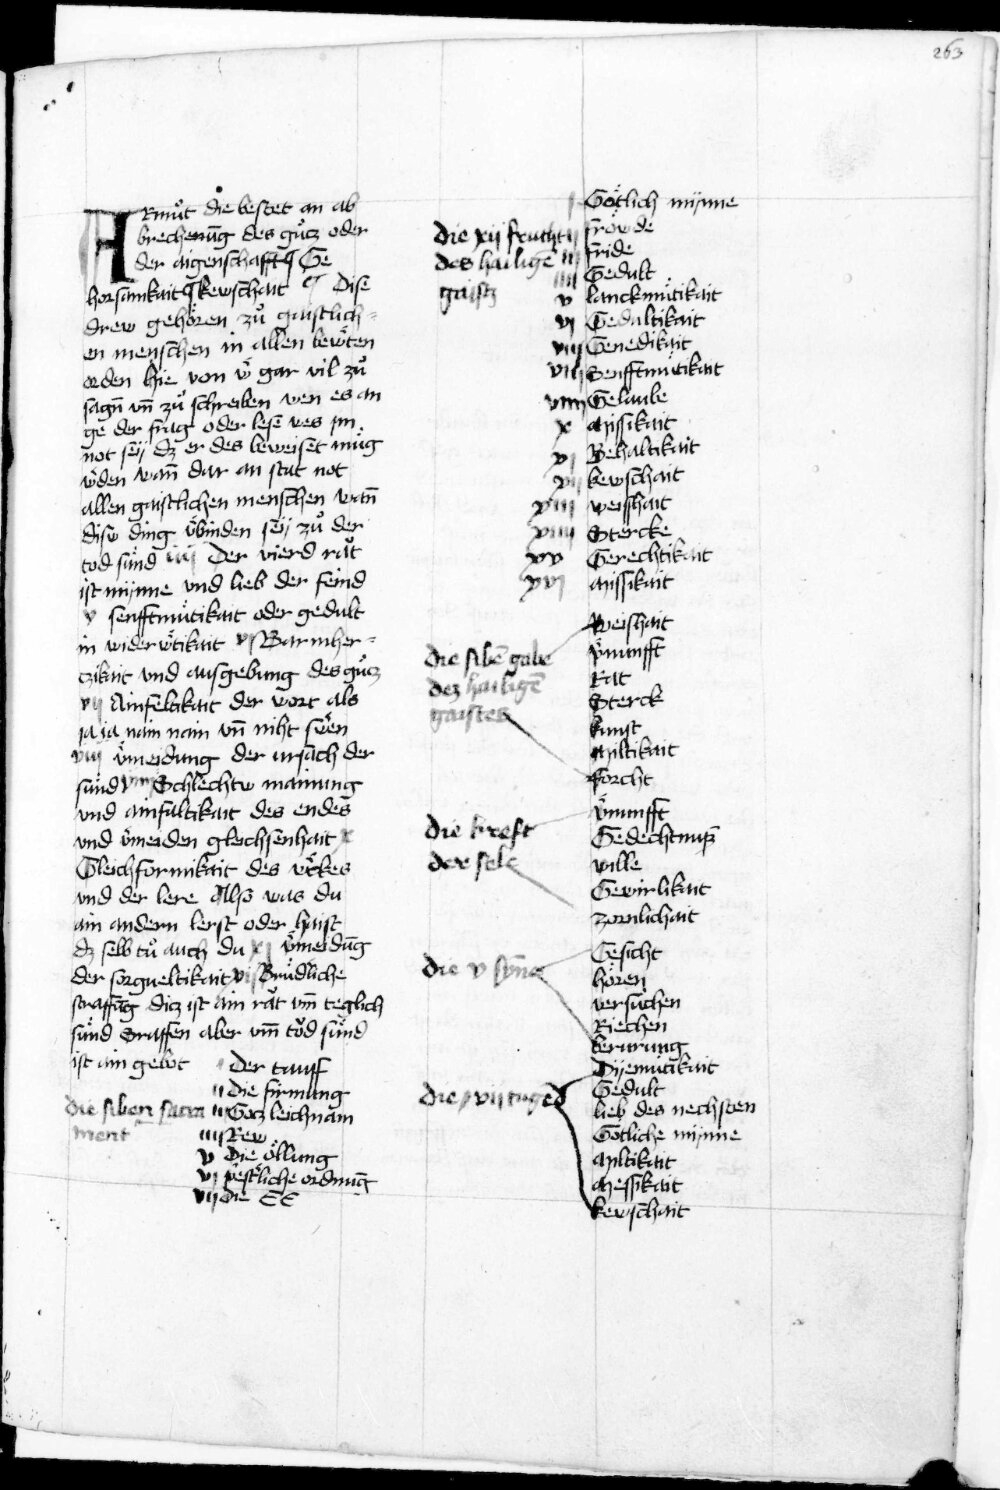 263
ARmuͦt die bestet an ab
brechenūg des guͦcz oder
der aigenschafft ¶ Ge
horsamkait ¶ kewschait ¶ Dise
drew gehoͤren zuͦ gaistlich=
en menschen in allen bewͤten
orden hie von gar vil zuͦ
sagn̄ vn̄ zuͦ schreiben wen es an
ge der frag oder lese wes im
not seÿ dz er des beweiset muͤg
wͤden wan̄ dar an stat not
allen gaistlichen menschen wan̄
disw ding vͤbinden seÿ zuͦ der
tod suͤnd iiij Der vierd raͧt
ist mÿnne vnd lieb der feind
v senfftmuͤtikait oder gedult
in widerwͤtikait vj Barmher=
czikait vnd ausgebung des guͦcz
vij Ainfeltikait der wort als
ja ja nain nain vn̄ niht swͤen
viij vͤmeidung der ursach der
suͤnd viiij Schlechtw mainung
vnd ainfaltikait des endes
vnd vͤmeiden gleichsenhait x
Gleichformikait des wͤkes
vnd der lere Also was du
ain andern lerst oder haist
dz selb tuͦ auch du xj vͤmeidūg
der sorgueltikait xij Bruͤdͤliche
straffūg dicz ist ain raͧt vm̄ teglich
suͤnd Straffen aber vm̄ toͤd suͤnd
ist ain gebot
die siben sacra
ment
i Der tauff
ii Die firmung
iii Gocz leichnam
iiii Rew
v Die oͤllung
vi pͤestͤliche ordnūg
vii Die EE
die xij frucht
des hailigē
gaistz
i Goͤtlich mÿnne
ii froͤwde
iii fride
iiii Gedult
v lanckmuͤtikait
vi Gedultikait
vii Genedikait
viii Senfftmuͤtikait
viiii Gelaube
x Mässikait
xi Behaltikait
xii kewschait
xiii weishait
xiiii Stercke
xv Gerechtikait
xvi Mässikait
die sibē gabe
dez hailigē
gaistes
Weishait
vͤnunfft
Rat
Sterck
kunst
Miltikait
Forcht
die kreft
der sele
vͤnunfft
Gedechtnuß
wille
Gewirlikait
zornlichait
die v syn̄e
Gesicht
hoͤren
versuͦchen
Riechen
berurung
die vii tugēd
Dÿemuͤtikait
Gedult
lieb des nechsten
Gotliche mÿnne
Miltikait
Messikait
kewschait